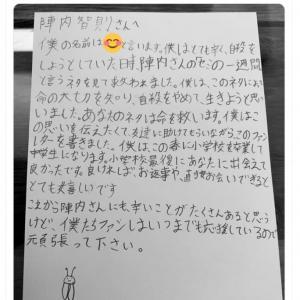 陣内智則さんへ
僕の名前は😊と言います。僕はとても辛く、自殺を
しようとしていた時、陣内さんのセミの一週間
と言うネタを見て救われました。僕は、このネタにより
命の大切さを知り、自殺をやめて、生きようと思
いました。あなたのネタは命を救います。僕はこ
の思いを伝えたくて、友達に助けてもらいながらこのファン
レターを書きました。僕はこの春に小学校を卒業して
中学生になります。小学校最後にあなたに出会えて
良かったです。良ければ、お返事や、直接お会いできると
とても嬉しいです
これから陣内さんにも辛いことがたくさんあると思う
けど、僕たちファンはいつまでも応援しているので
頑張って下さい。